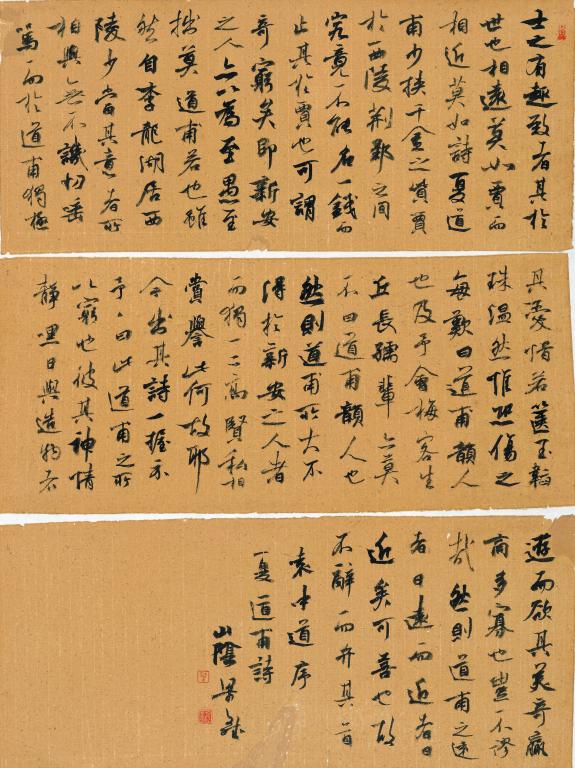 士之有趣致者其於
世也相遠莫如賈而
相近莫如詩夏道
甫少挾千金之貲賈
於西陵荆郢之間
究竟不能名一錢而
止其於賈也可謂
奇窮矣即新安
之人亦以為至愚至
拙莫道甫若也雖
然自李龍湖居西
陵少當其意者所
相與無不譏切謡
罵而於道甫獨極
其愛惜若篋玉韞
珠温然惟恐傷之
每歎曰道甫韻人
也及予會梅客生
丘長孺輩亦莫
不曰道甫韻人也
然則道甫所大不
得於新安之人者
而獨一二高賢私相
賞譽此何故耶
今出其詩一握示
予々曰此道甫之所
以窮也彼其神情
静嘿日與造物者
遊而欲其美奇贏
商多寡也豈不謬
哉然則道甫之遠
者日遠而近者日
近矣可善也故
不辭而弁其首
袁中道序
夏道甫詩
山陰